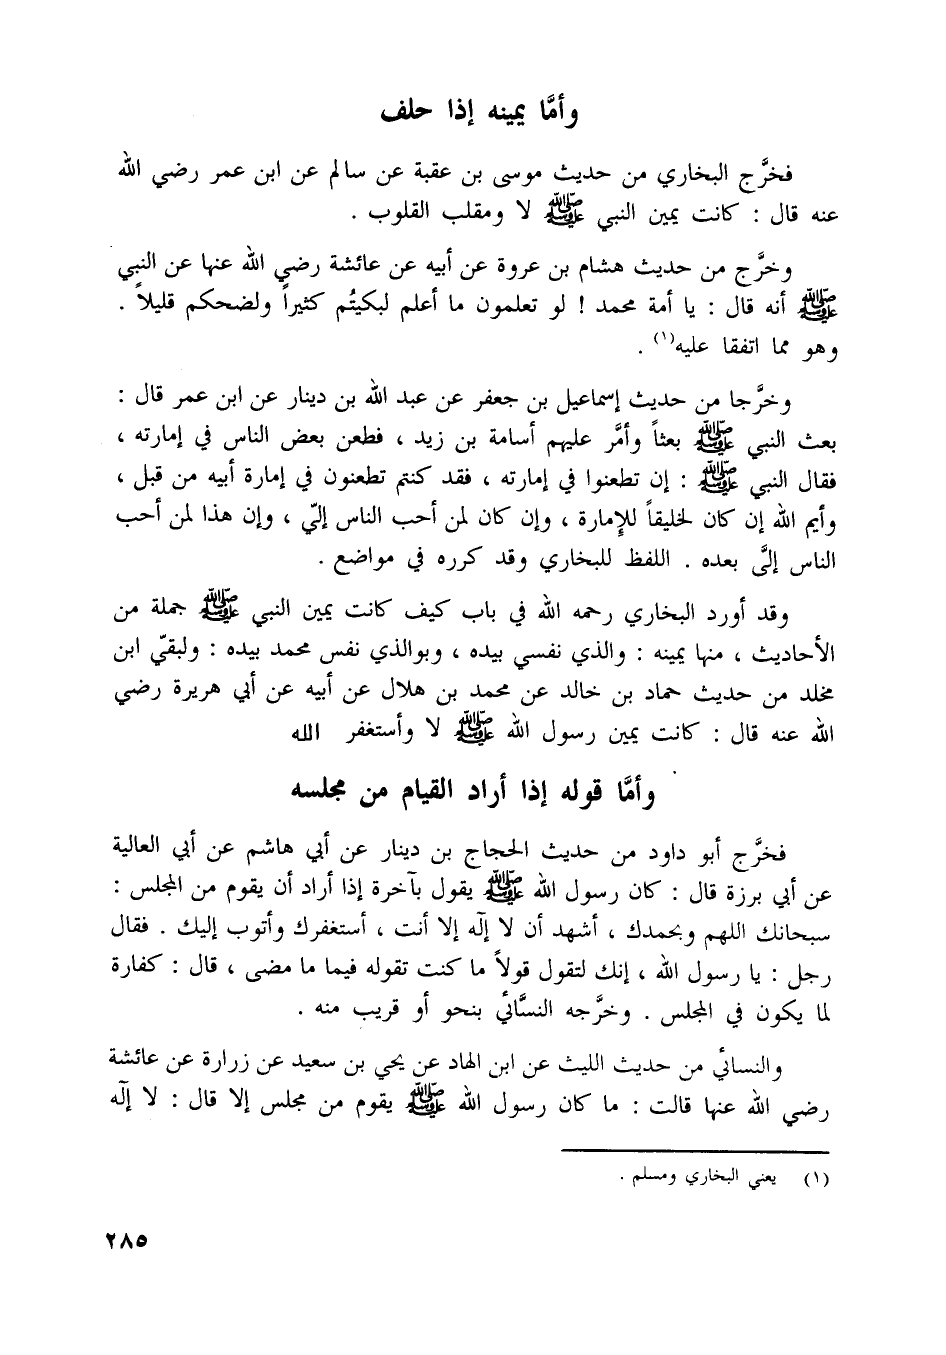 وأمَّا يمينه إذا حلف
فخرَّج البخاري من حديث موسى بن عقبة عن سالم عن ابن عمر رضي الله
عنه قال : كانت يمين النبي ﷺ لا ومقلب القلوب .
وخرَّج من حديث هشام بن عروة عن أبيه عن عائشة رضي الله عنها عن النبي
ﷺ أنه قال : يا أمة محمد ! لو تعلمون ما أعلم لبكيتُم كثيراً ولضحكم قليلاً .
وهو مما اتفقا عليه(١) .
وخرَّجا من حديث إسماعيل بن جعفر عن عبد الله بن دينار عن ابن عمر قال :
بعث النبي ﷺ بعثاً وأمَّر عليهم أسامة بن زيد ، فطعن بعض الناس في إمارته ،
فقال النبي ﷺ : إن تطعنوا في إمارته ، فقد كنتم تطعنون في إمارة أبيه من قبل ،
وأيم الله إن كان لخليقاً للإمارة ، وإن كان لمن أحب الناس إليّ ، وإن هذا لمن أحب
الناس إلىَّ بعده . اللفظ للبخاري وقد كرره في مواضع .
وقد أورد البخاري رحمه الله في باب كيف كانت يمين النبي ﷺ جملة من
الأحاديث ، منها يمينه : والذي نفسي بيده ، وبوالذي نفس محمد بيده : ولبقيّ ابن
مخلد من حديث حماد بن خالد عن محمد بن هلال عن أبيه عن أبي هريرة رضي
الله عنه قال : كانت يمين رسول الله ﷺ لا وأستغفر الله
وأمَّا قوله إذا أراد القيام من مجلسه
فخرَّج أبو داود من حديث الحجاج بن دينار عن أبي هاشم عن أبي العالية
عن أبي برزة قال : كان رسول الله ﷺ يقول بآخرة إذا أراد أن يقوم من المجلس :
سبحانك اللهم وبحمدك ، أشهد أن لا إلٓه إلا أنت ، أستغفرك وأتوب إليك . فقال
رجل : يا رسول الله ، إنك لتقول قولاً ما كنت تقوله فيما ما مضى ، قال : كفارة
لما يكون في المجلس . وخرَّجه النسَّائي بنحو أو قريب منه .
والنسائي من حديث الليث عن ابن الهاد عن يحي بن سعيد عن زرارة عن عائشة
رضي الله عنها قالت : ما كان رسول الله ﷺ يقوم من مجلس إلا قال : لا إلٓه
(١) يعني البخاري ومسلم .
٢٨٥